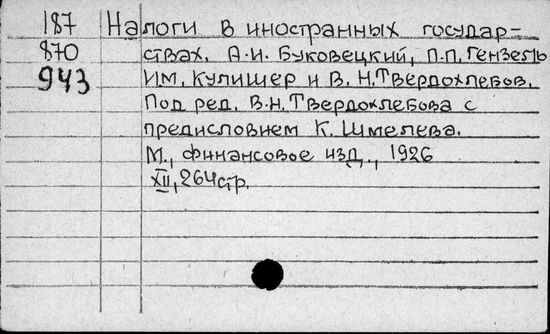 187 Налоги в иностранных государ-
870 ствах. А.И. Буковецкий, П.П. Гензель
943 И.М. Кулишер и В.Н. Твердохлебов.
Под ред. В.Н. Твердохлебова с
предисловием К. Шмелева.
М., Финансовое изд., 1926
XII, 264 стр.